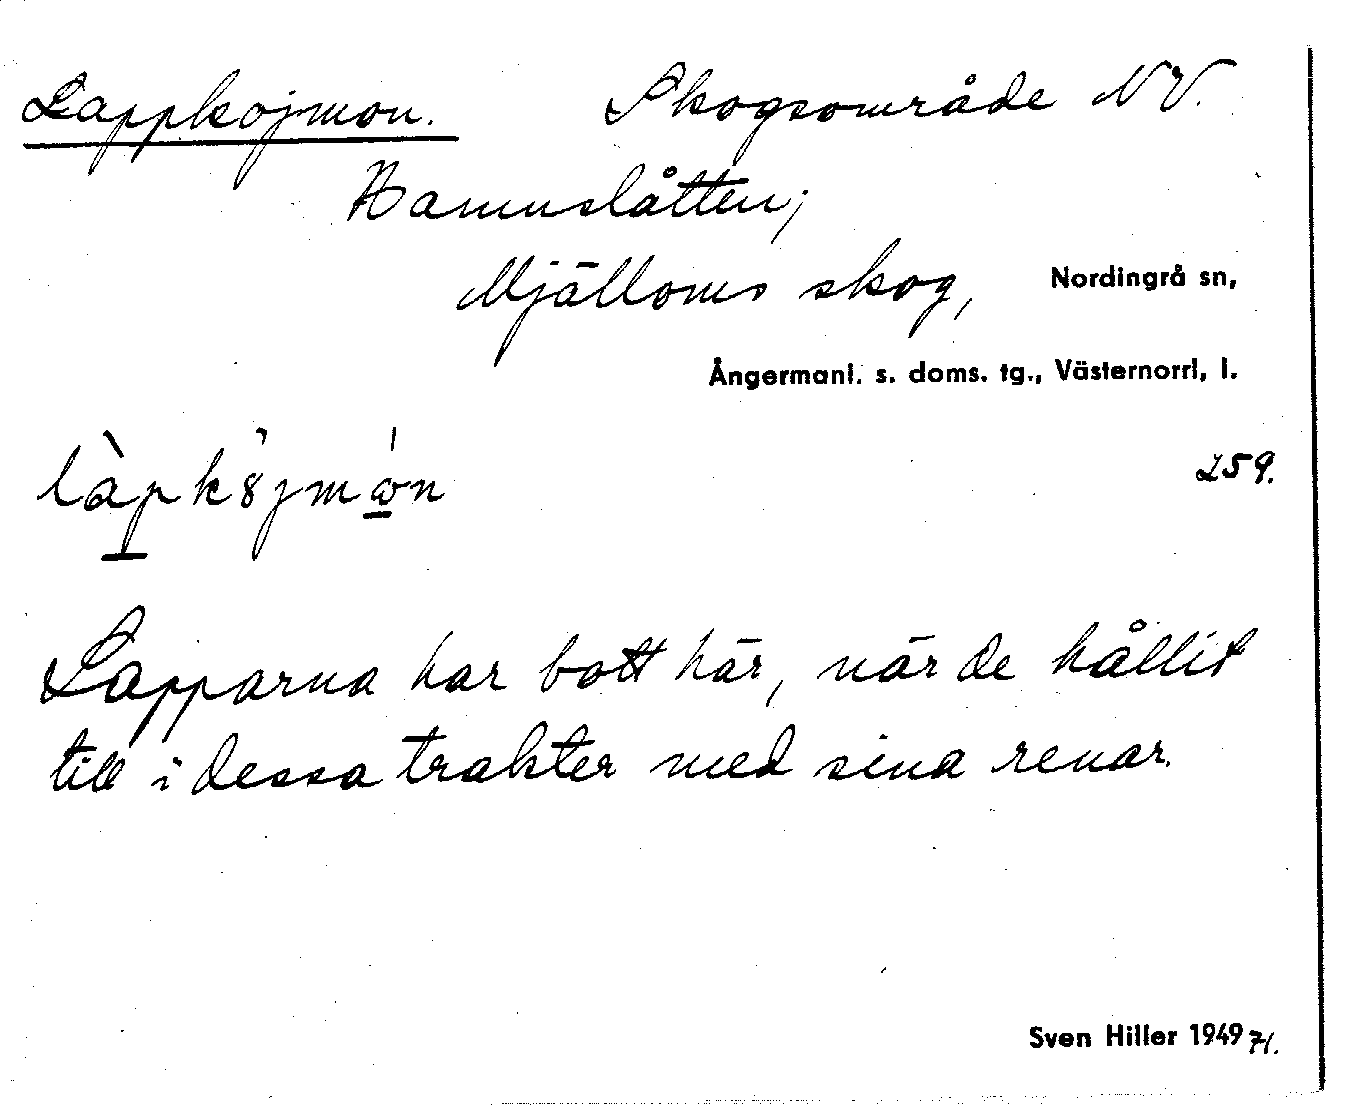 Lappkojmon. Skogsområde NV.
Hamnslåtten;
Mjälloms skog, Nordingrå sn,
Ångermanl. s. doms. tg., Västernorrl, l.
259.
Lapparna har bott här, när de hållit
till i dessa trakter med sina renar.
Sven Hiller 1949 71.